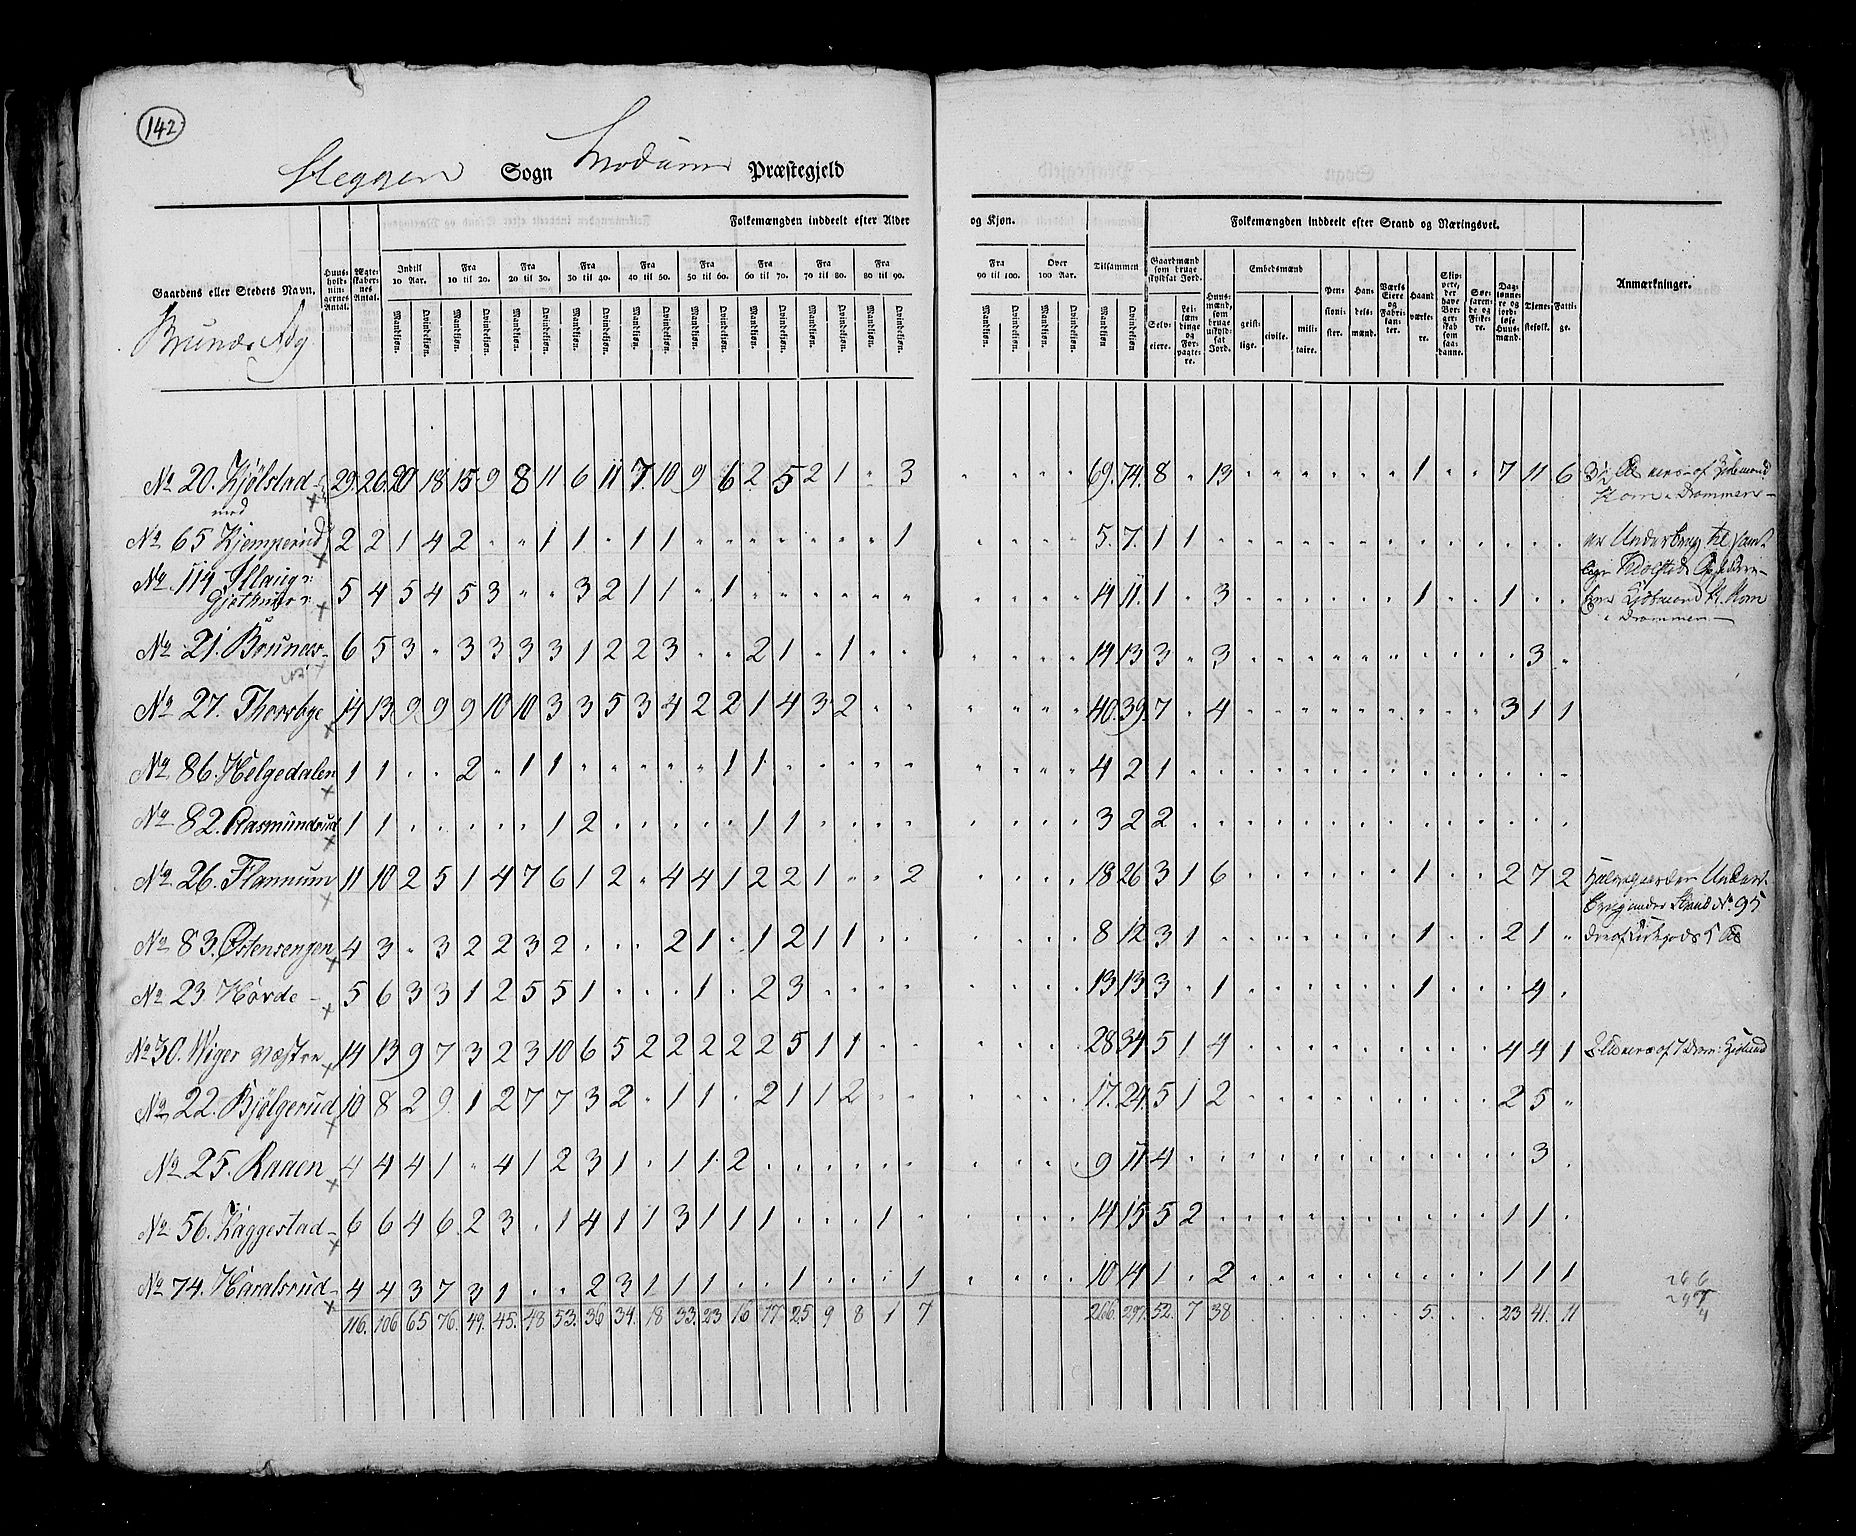 142
Heggen Sogn Modum Præstegjeld
Folkemængden inddeelt efter Alder og Kjøn.
Folkemængden inddeelt efter Stand og Næringsvei.
Gaardens eller Stedets Navn.
Huus-holdningernes Antal.
Ægteskabernes Antal.
Indtil 10 Aar.
Fra 10 til 20.
Fra 20 til 30.
Fra 30 til 40.
Fra 40 til 50.
Fra 50 til 60.
Fra 60 til 70.
Fra 70 til 80.
Fra 80 til 90.
Fra 90 til 100.
Over 100 Aar.
Tilsammen
Mandkjøn. Qvindekjøn.
Gaardmænd som bruge skyldsat Jord.
Selveiere.
Leilændinge og Forpagtere.
Huusmænd, som bruge uskyldsat Jord.
Embedsmænd
geistlige. civile. militaire.
Pensionister.
Handelsmænd.
Værks Eiere og Fabrikanter.
Haandværkere.
Skippere, der have Borgerskab som saadanne.
Søefarende og Fiskere.
Daglønnere og jordløse Huusmænd.
Tjenestefolk.
Fattige.
Anmærkninger.
Brunæs Rdg
No 20. Kjölstad 29 26 20 18 15 9 8 11 6 11 7 10 9 6 2 5 2 1 " 3 69. 74. 8 " 13 1 7 11 6
No 65 Kjemperud 2 2 1 4 2 " " 1 1 " 1 1 1 5. 7. 1 1
No 114 Haug 5 4 5 4 5 3 " " 3 2 1 1 " 1 14 11. 1 " 3 1 1
No 21. Brunæs 6 5 3 " 3 3 3 3 1 2 2 3 " " 2 1 " 1 " " 14 13 3 " 3 3
No 27. Thorbye 14 13 9 9 9 10 10 3 3 5 3 4 2 2 1 4 3 2 " " 40. 39 7 " 4 3 1 1
No 86. Helgedalen 1 1 " " 2 " 1 1 1 1 4 2 1
No 82. Aasmundrud 1 1 1 2 1 1 3 2 2
No 26. Flannum 11 10 2 5 1 4 7 6 1 2 " 4 4 1 2 2 1 " " 2 18 26 3 1 6 1 2 7 2
No 83. Østensengen 4 3 " 3 2 2 3 2 " " " 2 1 " 1 2 1 1 " " 8 12 3 1 1 2 1 "
No 23 Hörde 5 6 3 3 1 2 5 5 1 " " " 1 " 2 3 13 13 3 " 1 1 4
No 30. Wiger Væstre 14 13 9 7 3 2 3 10 6 5 2 2 2 2 2 5 1 1 " " 28 34 5 1 4 4 4 1
No 22. Bjölgerud 10 8 2 9 1 2 7 7 3 2 " 1 1 " 2 1 1 2 " " 17. 24. 5 1 2 2 5 "
No 25. Raaen 4 4 4 1 " 4 1 2 3 1 " 1 1 2 9 11 4 3
No 56. Kaggestad 6 6 4 6 2 3 " 1 4 1 1 3 1 1 1 " " " 1 " 14 15 5 2 1 1
No 74. Haralsrud 4 4 3 7 3 1 " " 2 3 1 1 1 " " 1 " " " 1 10 14 1 " 2 1 1 1
116. 106 65. 76. 49. 45. 48 53. 36 34. 18 33. 23 16 17 25 9 8 1 7 266. 297. 52. 7 38 5. 23 41. 11
er Underbrug til
Drammen